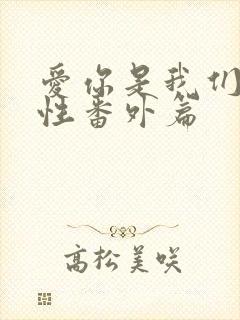 愛你是我们
性番外篇
高松美咲